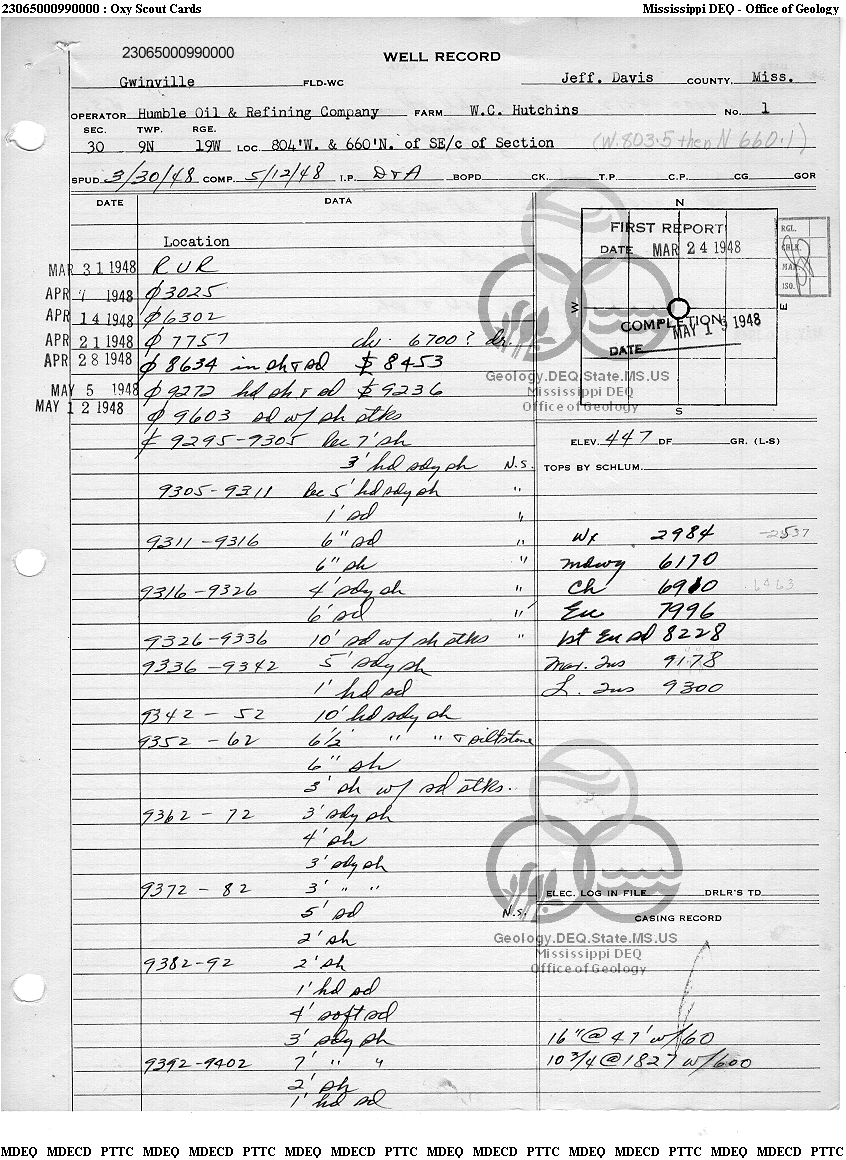 23065000990000 : Oxy Scout Cards Mississippi DEQ - Office of Geology
23065000990000
WELL RECORD
Gwinville FLD-WC Jeff. Davis COUNTY, Miss.
OPERATOR Humble Oil & Refining Company FARM W.C. Hutchins No. 1
SEC. TWP. RGE.
30 9N 19W LOC. 804'W. & 660'N. of SE/c of Section (W. 803.5 then N 660.1)
SPUD 3/30/48 COMP. 5/12/48 I.P. D+A BOPD CK. T.P. C.P. CG GOR
DATE DATA
N
FIRST REPORT
DATE MAR 24 1948
RGL.
CHLK
MAX
ISO.
W E
COMPLETION
DATE MAY 19 1948
S
Location
MAR 31 1948 RUR
APR 7 1948 ϕ 3025
APR 14 1948 ϕ 6302
APR 21 1948 ϕ 7757 ch. 6700? dr.
APR 28 1948 ϕ 8634 in sh + sd $ 8453
MAY 5 1948 ϕ 9272 hd sh + sd $ 9236
MAY 12 1948 ϕ 9603 sd w/ sh stks
Geology.DEQ.State.MS.US
Mississippi DEQ
Office of Geology
₵ 9295-9305 Rec 7' sh
3' hd sdy sh N.S.
9305-9311 Rec 5' hd sdy sh "
1' sd "
9311-9316 6" sd "
6" sh "
9316-9326 4' sdy sh "
6' sd "
9326-9336 10' sd w/ sh stks "
9336-9342 5' sdy sh
1' hd sd
9342 - 52 10' hd sdy sh
9352 - 62 6½' " " + siltstone
6" sh
3' sh w/ sd stks.
9362 - 72 3' sdy sh
4' sh
3' sdy sh
9372 - 82 3' " "
5' sd N.S.
2' sh
9382-92 2' sh
1' hd sd
4' soft sd
3' sdy sh
9392-9402 7' " "
2' sh
1' hd sd
ELEV. 447 DF GR. (L-S)
TOPS BY SCHLUM.
Wx 2984 -2537
mdwy 6170
Ch 6910 -6463
Eu 7996
1st Eu sd 8228
Mar. Tus 9178
L. Tus 9300
ELEC. LOG IN FILE DRLR'S TD
CASING RECORD
Geology.DEQ.State.MS.US
Mississippi DEQ
Office of Geology
16" @ 47' w/60
10 3/4 @ 1827 w/600
MDEQ MDECD PTTC MDEQ MDECD PTTC MDEQ MDECD PTTC MDEQ MDECD PTTC MDEQ MDECD PTTC MDEQ MDECD PTTC